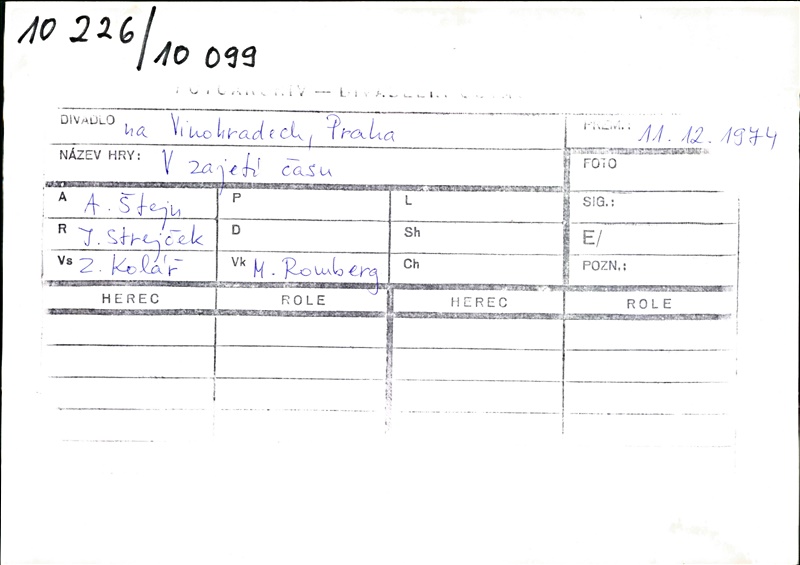 10 226/10 099
FOTOARCHIV — DIVADELNÍ
DIVADLO na Vinohradech, Praha PREM.: 11. 12. 1974
NÁZEV HRY: V zajetí času FOTO
A A. Štejn P L SIG.:
R J. Strejček D Sh E/
Vs Z. Kolář Vk M. Romberg Ch POZN.:
HEREC ROLE HEREC ROLE